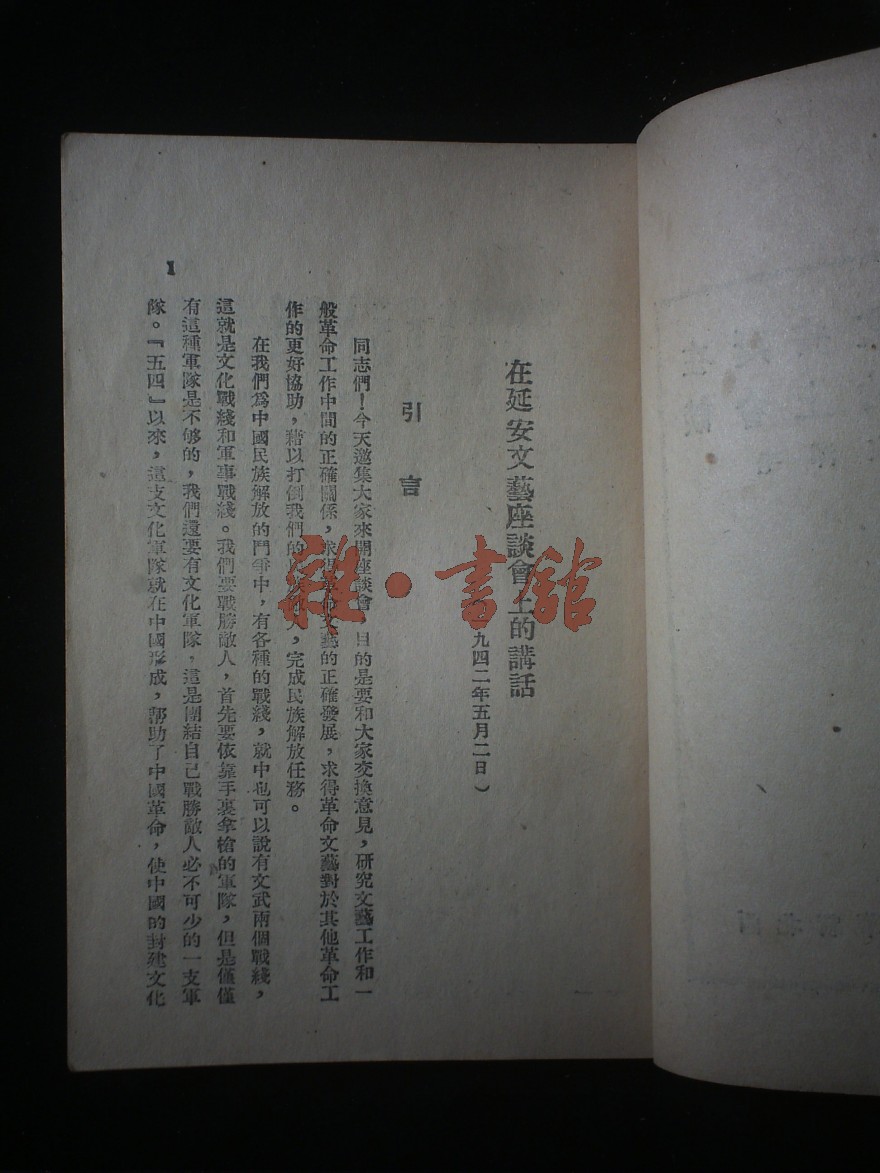 在延安文藝座談會上的講話
九四二年五月二日)
引言
同志們!今天邀集大家來開座談會,目的是要和大家交換意見,研究文藝工作和一
般革命工作中間的正確關係,求得革命文藝的正確發展,求得革命文藝對於其他革命工
作的更好協助,藉以打倒我們的民族敵人,完成民族解放任務。
在我們爲中國民族解放的鬥爭中,有各種的戰綫,就中也可以說有文武兩個戰綫,
這就是文化戰綫和軍事戰綫。我們要戰勝敵人,首先要依靠手裏拿槍的軍隊,但是僅僅
有這種軍隊是不够的,我們還要有文化軍隊,這是團結自己戰勝敵人必不可少的一支軍
隊。『五四』以來,這支文化軍隊就在中國形成,帮助了中國革命,使中國的封建文化
1
雜·書館